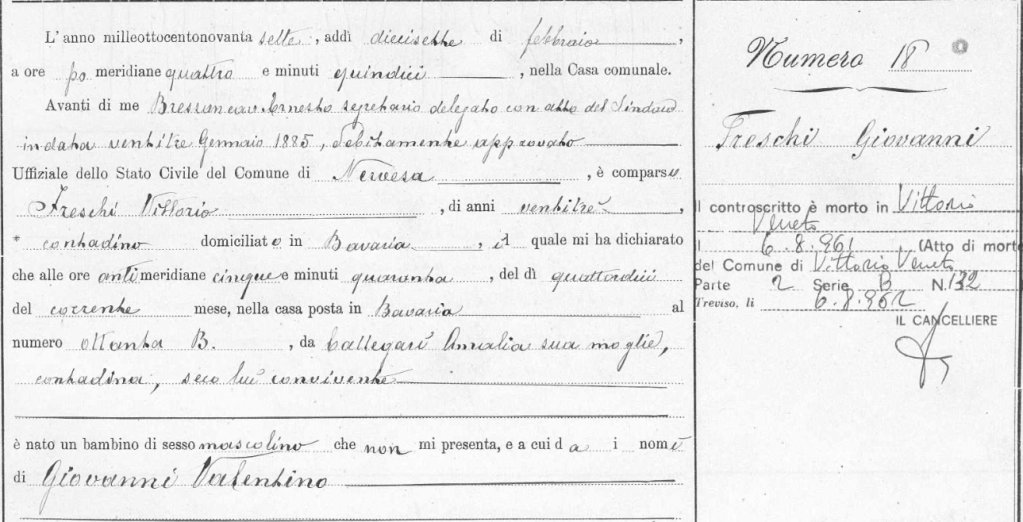 L'anno milleottocentonovanta sette, addì diecisette di febbraio,
a ore po meridiane quattro e minuti quindici, nella Casa comunale.
Avanti di me Bressanean Ernesto segretario delegato con atto del Sindaco
in data ventitre Gennaio 1885, debitamente approvato
Uffiziale dello Stato Civile del Comune di Nervesa, è comparso
Freschi Vittorio, di anni ventitre,
contadino domiciliato in Bavaria, il quale mi ha dichiarato
che alle ore anti meridiane cinque e minuti quaranta, del dì quattordici
del corrente mese, nella casa posta in Bavaria al
numero ottanta B., da Callegari Amalia sua moglie,
contadina, seco lui convivente
è nato un bambino di sesso mascolino che non mi presenta, e a cui dà i nomi
di Giovanni Valentino
Numero 18
Freschi Giovanni
Il controscritto è morto in Vittorio
Veneto
il 6.8.961 (Atto di morte
del Comune di Vittorio Veneto
Parte 2 Serie B N. 132
Treviso, li 6.8.962
IL CANCELLIERE